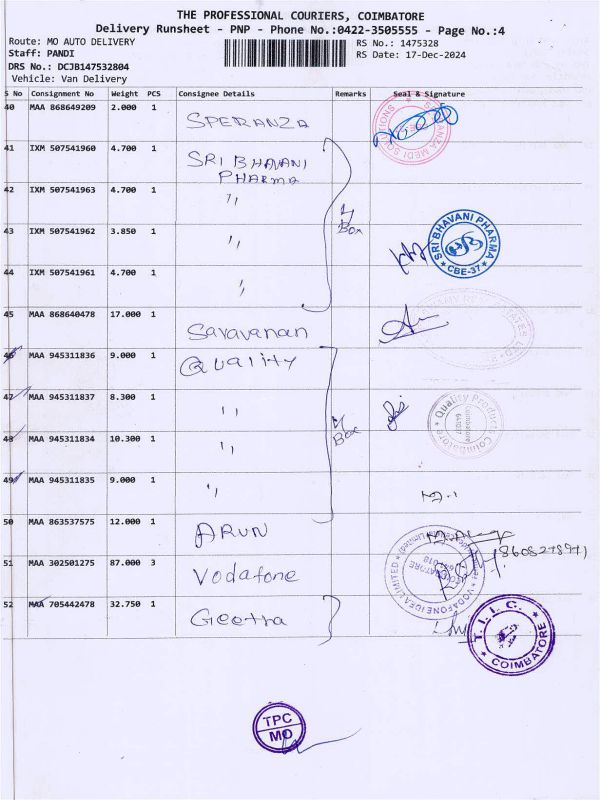 THE PROFESSIONAL COURIERS, COIMBATORE
Delivery Runsheet - PNP - Phone No.:0422-3505555 - Page No.:4
Route: MO AUTO DELIVERY
RS No.: 1475328
Staff: PANDI
RS Date: 17-Dec-2024
DRS No.: DCJB147532804
Vehicle: Van Delivery
S No Consignment No Weight PCS Consignee Details Remarks Seal & Signature
40 MAA 868649209 2.000 1 SPERANZA
41 IXM 507541960 4.700 1 SRI BHAVANI PHARMA
42 IXM 507541963 4.700 1 "
43 IXM 507541962 3.850 1 "
44 IXM 507541961 4.700 1 "
4 Box
SRI BHAVANI PHARMA
CBE-37
45 MAA 868640478 17.000 1 Saravanan
46 MAA 945311836 9.000 1 QUALITY
47 MAA 945311837 8.300 1 "
48 MAA 945311834 10.300 1 "
49 MAA 945311835 9.000 1 "
4 Box
Quality Products
Coimbatore
50 MAA 863537575 12.000 1 ARUN
51 MAA 302501275 87.000 3 Vodafone
VODAFONE IDEA LIMITED
52 MAA 705442478 32.750 1 Geetha
T.I.I.C.
COIMBATORE
TPC
MO